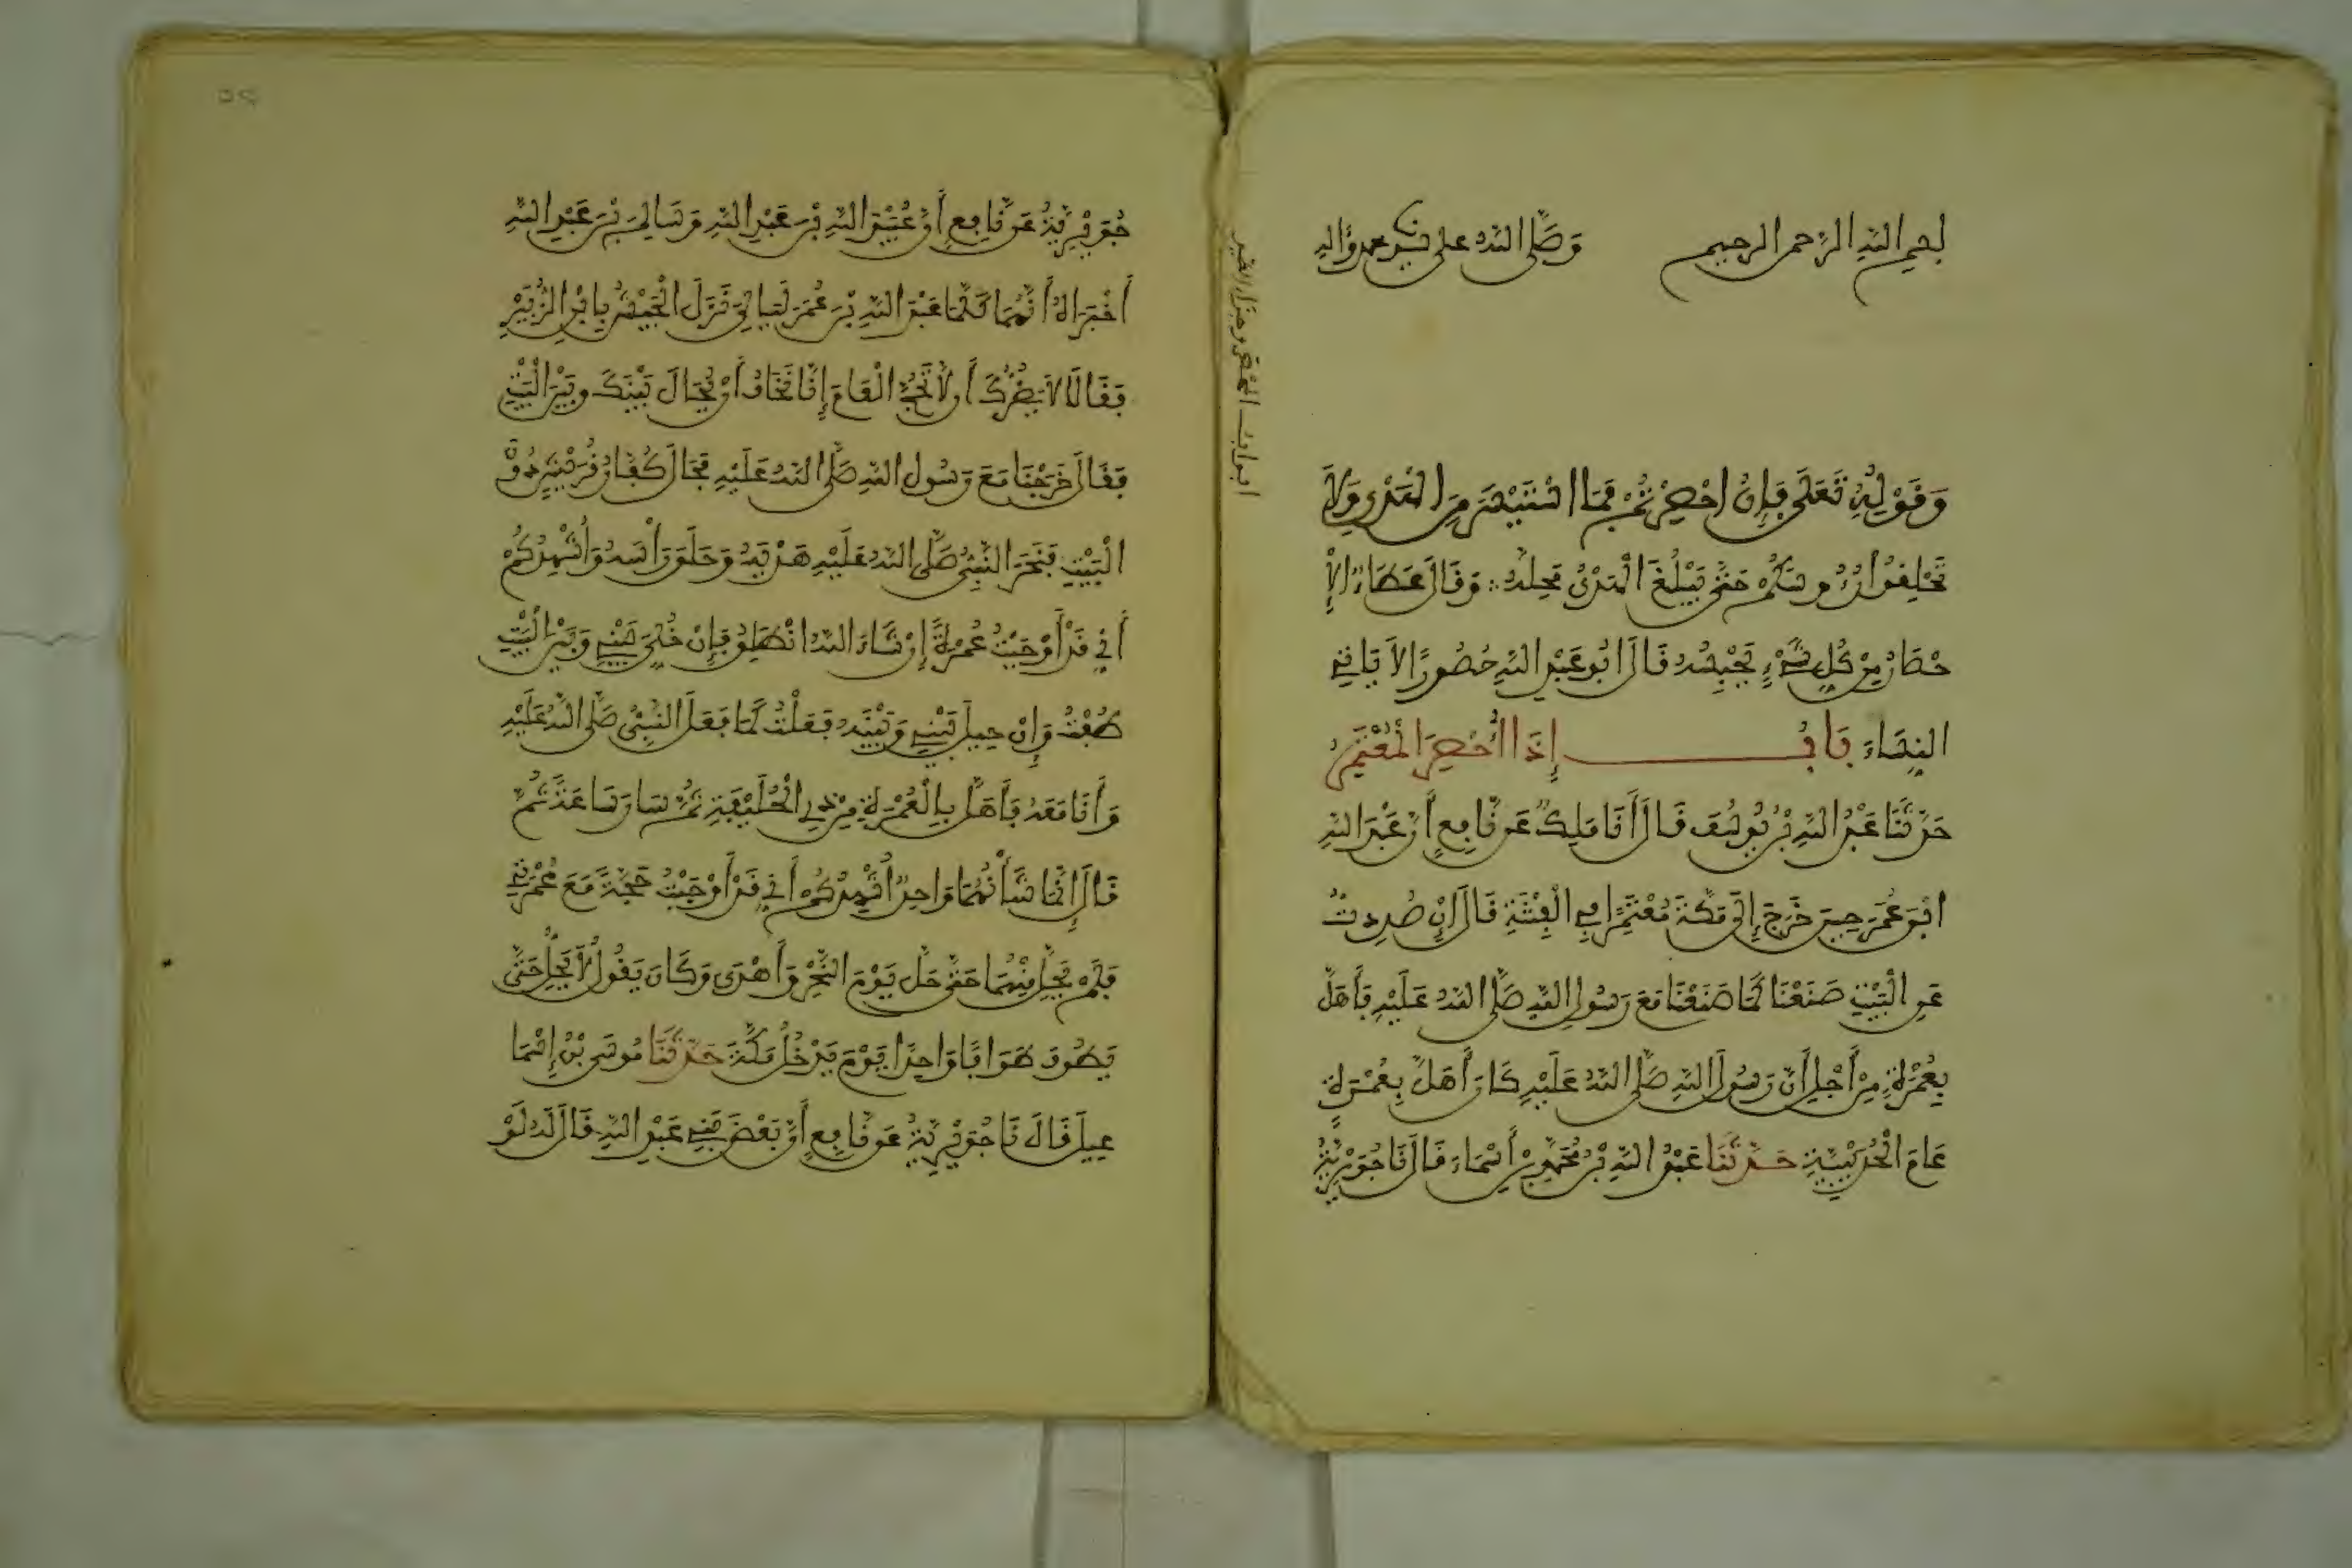 بسم الله الرحمن الرحيم وَصَلَّى اللهُ على نبيِّه محمد وَءَالِه
وَقَوْلِهِ تَعَلَى فَإِنُ احْصِرْتُمْ فَمَا اسْتَيْسَرَ مِنَ الْهَدْيِ وَلَا
تَحْلِقُوا رُءُوسَكُمْ حَتَّى يَبْلُغَ الْهَدْيُ مَحِلَّهُ وَقَالَ عَطَاءٌ الْإِ
حْصَارُ مِنْ كُلِّ شَيْءٍ يَحْبِسُهُ قَالَ ابُو عَبْدِ اللهِ حَصُورًا لَا يَاتِي
النِّسَاءَ بَابُ إِذَا أُحْصِرَ الْمُعْتَمِرُ
حَدَّثَنَا عَبْدُ اللهِ بْنُ يُوسُفَ قَالَ أَنَا مَلِكٌ عَنْ نَّافِعٍ أَنَّ عَبْدَ اللهِ
ابْنَ عُمَرَ حِينَ خَرَجَ إِلَى مَكَّةَ مُعْتَمِرًا فِي الْفِتْنَةِ قَالَ إِنْ صُدِدتُّ
عَنِ الْبَيْتِ صَنَعْنَا كَمَا صَنَعْنَا مَعَ رَسُولِ اللهِ صَلَّى اللهُ عَلَيْهِ فَأَهَلَّ
بِعُمْرَةٍ مِنْ أَجْلِ أَنَّ رَسُولَ اللهِ صَلَّى اللهُ عَلَيْهِ كَانَ أَهَلَّ بِعُمْرَةٍ
عَامَ الْحُدَيْبِيَةِ حَدَّثَنَا عَبْدُ اللهِ بْنُ مُحَمَّدِ بْنِ أَسْمَاءَ قَالَ نَا جُوَيْرِيَةُ
ابواب المحصر وجزاء الصيد
جُوَيْرِيَةُ عَنْ نَّافِعٍ أَنَّ عُبَيْدَ اللهِ بْنَ عَبْدِ اللهِ وَسَالِمَ بْنَ عَبْدِ اللهِ
أَخْبَرَاهُ أَنَّهُمَا كَلَّمَا عَبْدَ اللهِ بْنَ عُمَرَ لَيَالِيَ نَزَلَ الْجَيْشُ بِابْنِ الزُّبَيْرِ
فَقَالَا لَا يَضُرُّكَ أَن لَّا تَحُجَّ الْعَامَ إِنَّا نَخَافُ أَنْ يُحَالَ بَيْنَكَ وَبَيْنَ الْبَيْتِ
فَقَالَ خَرَجْنَا مَعَ رَسُولِ اللهِ صَلَّى اللهُ عَلَيْهِ فَحَالَ كُفَّارُ قُرَيْشٍ دُونَ
الْبَيْتِ فَنَحَرَ النَّبِيُّ صَلَّى اللهُ عَلَيْهِ هَدْيَهُ وَحَلَقَ رَأْسَهُ وَأُشْهِدُكُمْ
أَنِّي قَدْ أَوْجَبْتُ عُمْرَةً إِنْ شَاءَ اللهُ انْطَلِقُ فَإِنْ خُلِّيَ بَيْنِي وَبَيْنَ الْبَيْتِ
طُفْتُ وَإِنْ حِيلَ بَيْنِي وَبَيْنَهُ فَعَلْتُ كَمَا فَعَلَ النَّبِيُّ صَلَّى اللهُ عَلَيْهِ
وَأَنَا مَعَهُ فَأَهَلَّ بِالْعُمْرَةِ مِنْ ذِي الْحُلَيْفَةِ ثُمَّ سَارَ سَاعَةً ثُمَّ
قَالَ إِنَّمَا شَأْنُهُمَا وَاحِدٌ أُشْهِدُكُمْ أَنِّي قَدْ أَوْجَبْتُ حَجَّةً مَعَ عُمْرَتِي
فَلَمْ يَحِلَّ مِنْهُمَا حَتَّى حَلَّ يَوْمَ النَّحْرِ وَأَهْدَى وَكَانَ يَقُولُ لَا يَحِلُّ حَتَّى
يَطُوفَ طَوَافًا وَاحِدًا يَوْمَ يَدْخُلُ مَكَّةَ حَدَّثَنَا مُوسَى بْنُ إِسْمَا
عِيلَ قَالَ نَا جُوَيْرِيَةُ عَنْ نَّافِعٍ أَنَّ بَعْضَ بَنِي عَبْدِ اللهِ قَالَ لَهُ لَوْ